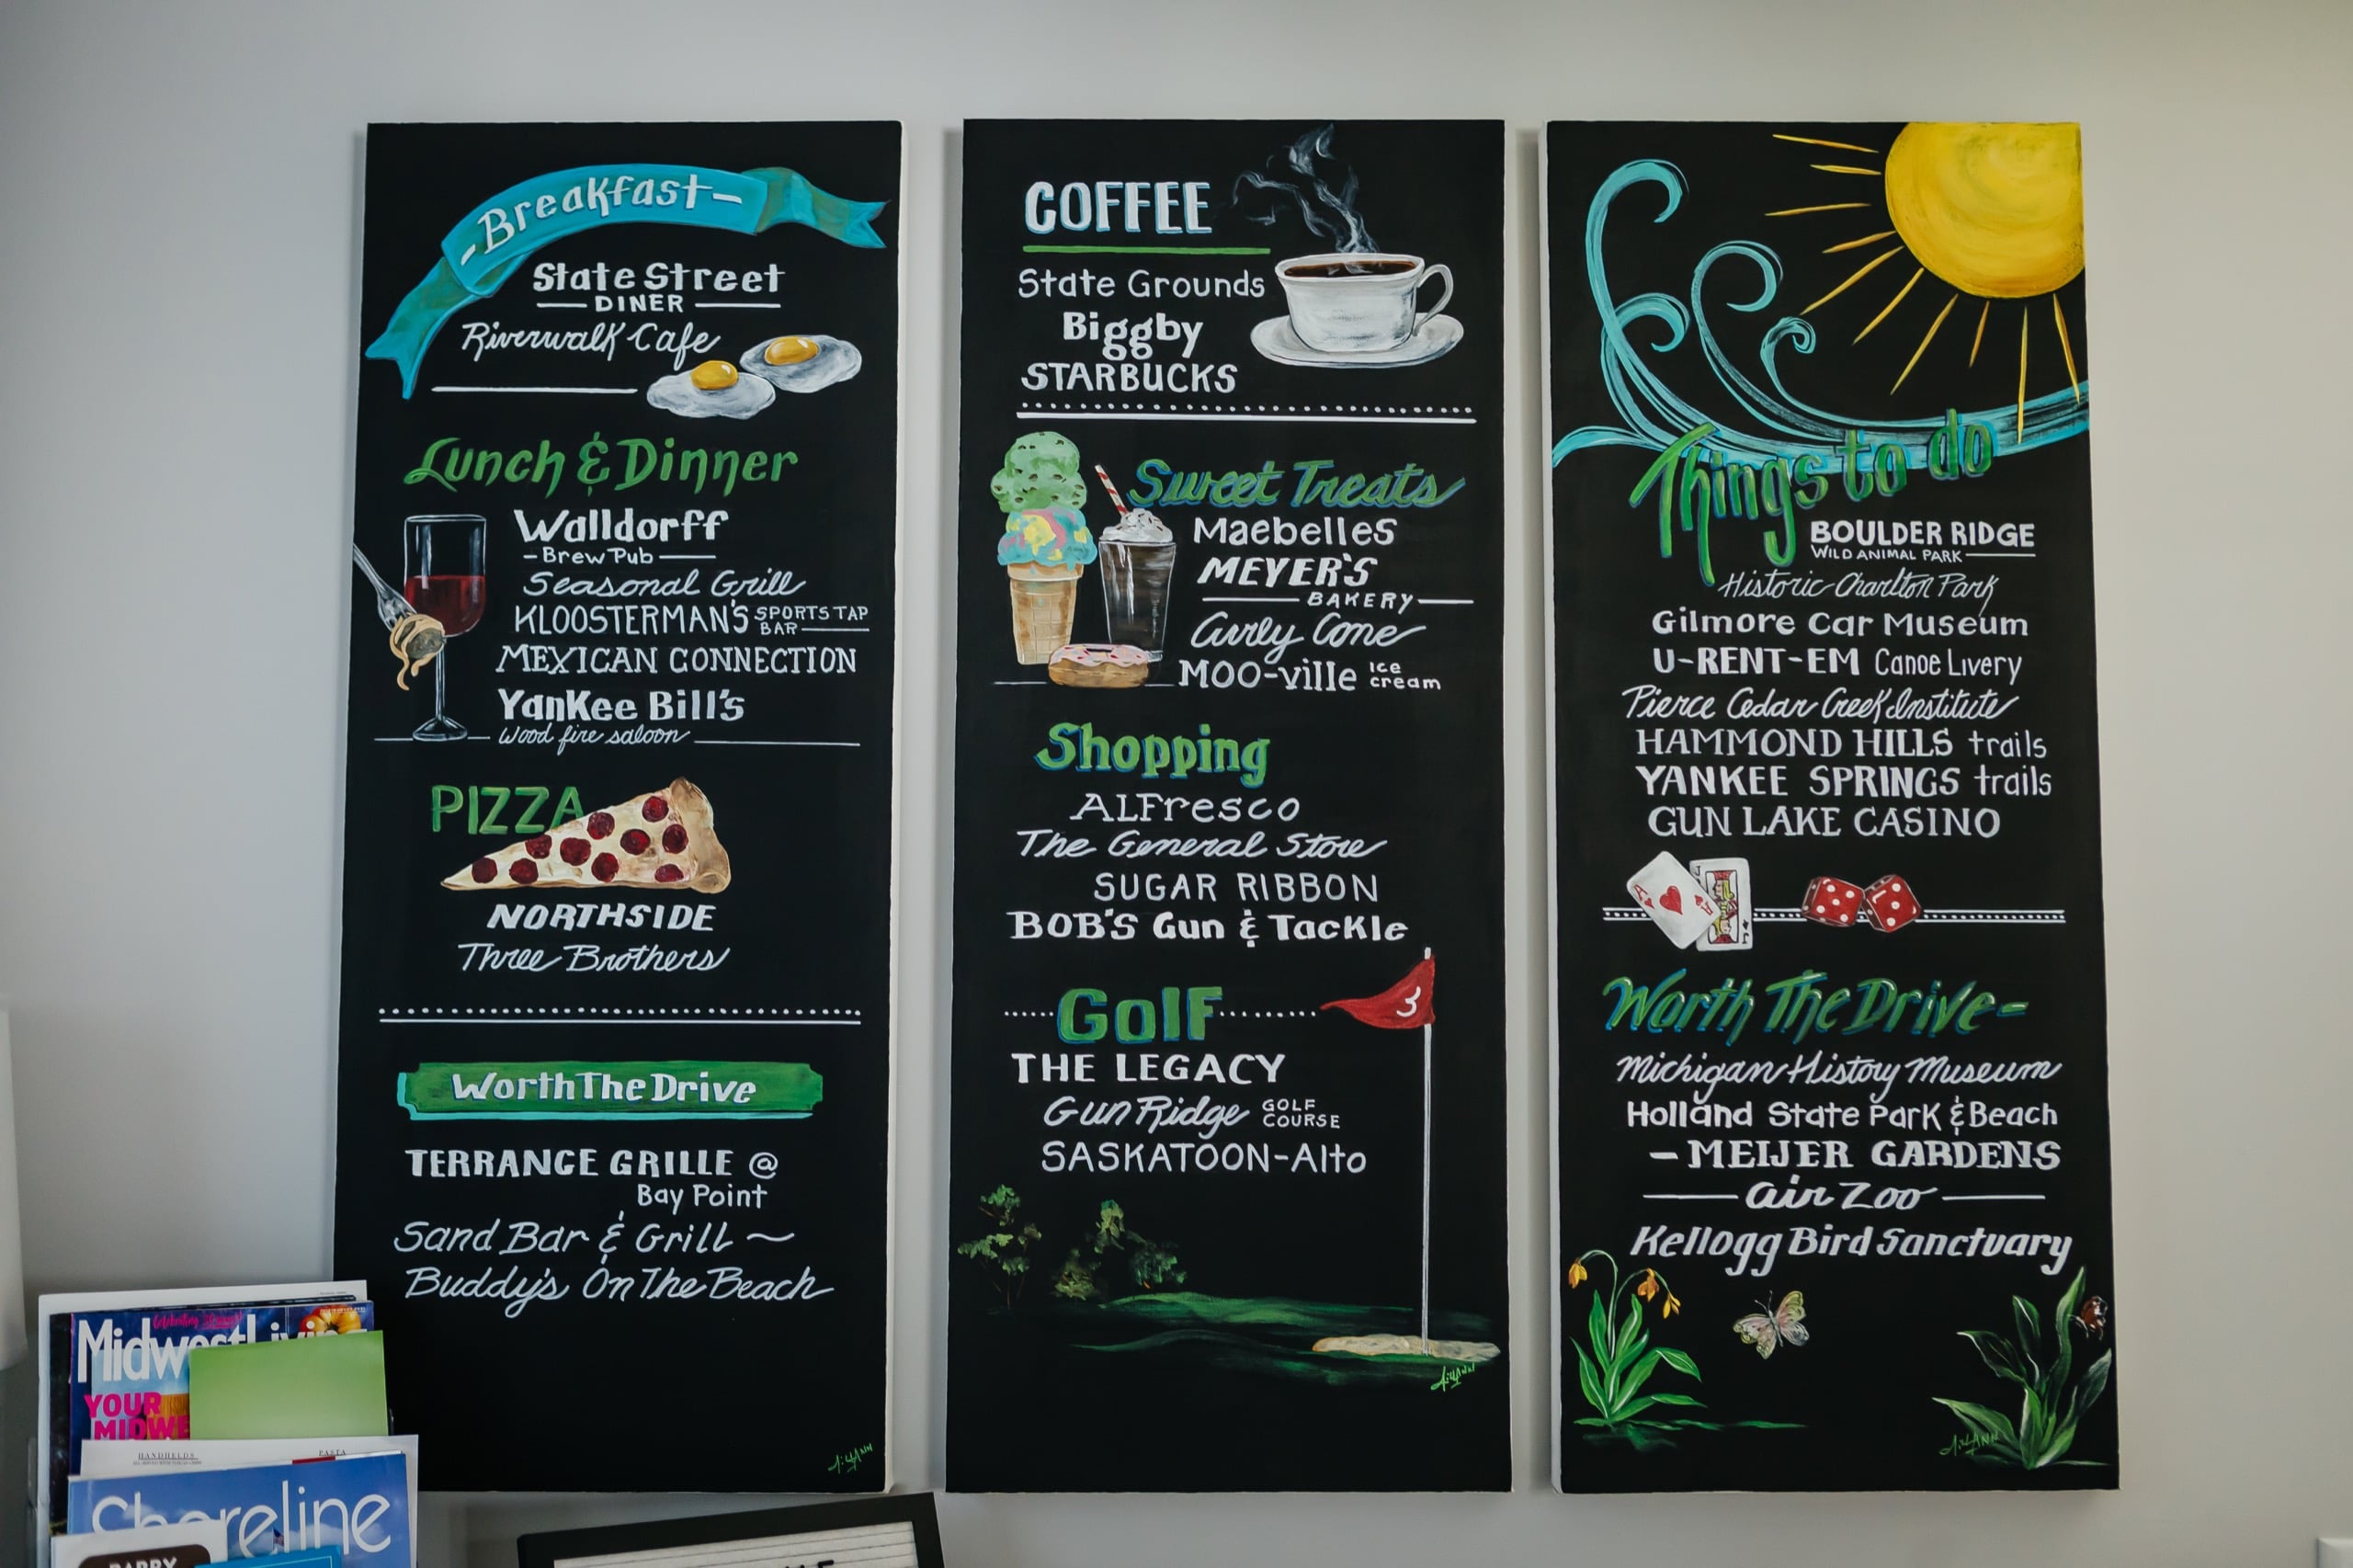 -Breakfast-
State Street
DINER
Riverwalk Cafe
Lunch & Dinner
Walldorff
-Brew Pub-
Seasonal Grill
KLOOSTERMAN'S SPORTS TAP
BAR
MEXICAN CONNECTION
Yankee Bill's
Wood fire saloon
PIZZA
NORTHSIDE
Three Brothers
Worth The Drive
TERRANCE GRILLE @
Bay Point
Sand Bar & Grill ~
Buddy's On The Beach
JillAnn
COFFEE
State Grounds
Biggby
STARBUCKS
Sweet Treats
Maebelles
MEYER'S
BAKERY
Curly Cone
MOO-ville Ice
cream
Shopping
ALFresco
The General Store
SUGAR RIBBON
BOB'S Gun & Tackle
Golf
3
THE LEGACY
Gun Ridge GOLF
COURSE
SASKATOON-Alto
JillAnn
Things to do
BOULDER RIDGE
WILD ANIMAL PARK
Historic Charlton Park
Gilmore Car Museum
U-RENT-EM Canoe Livery
Pierce Cedar Creek Institute
HAMMOND HILLS trails
YANKEE SPRINGS trails
GUN LAKE CASINO
A
A
J
Worth The Drive-
Michigan History Museum
Holland State Park & Beach
- MEIJER GARDENS
Air Zoo
Kellogg Bird Sanctuary
JillAnn
Midwest Living
YOUR
MIDWE
HANDHELDS
PASTA
Shoreline